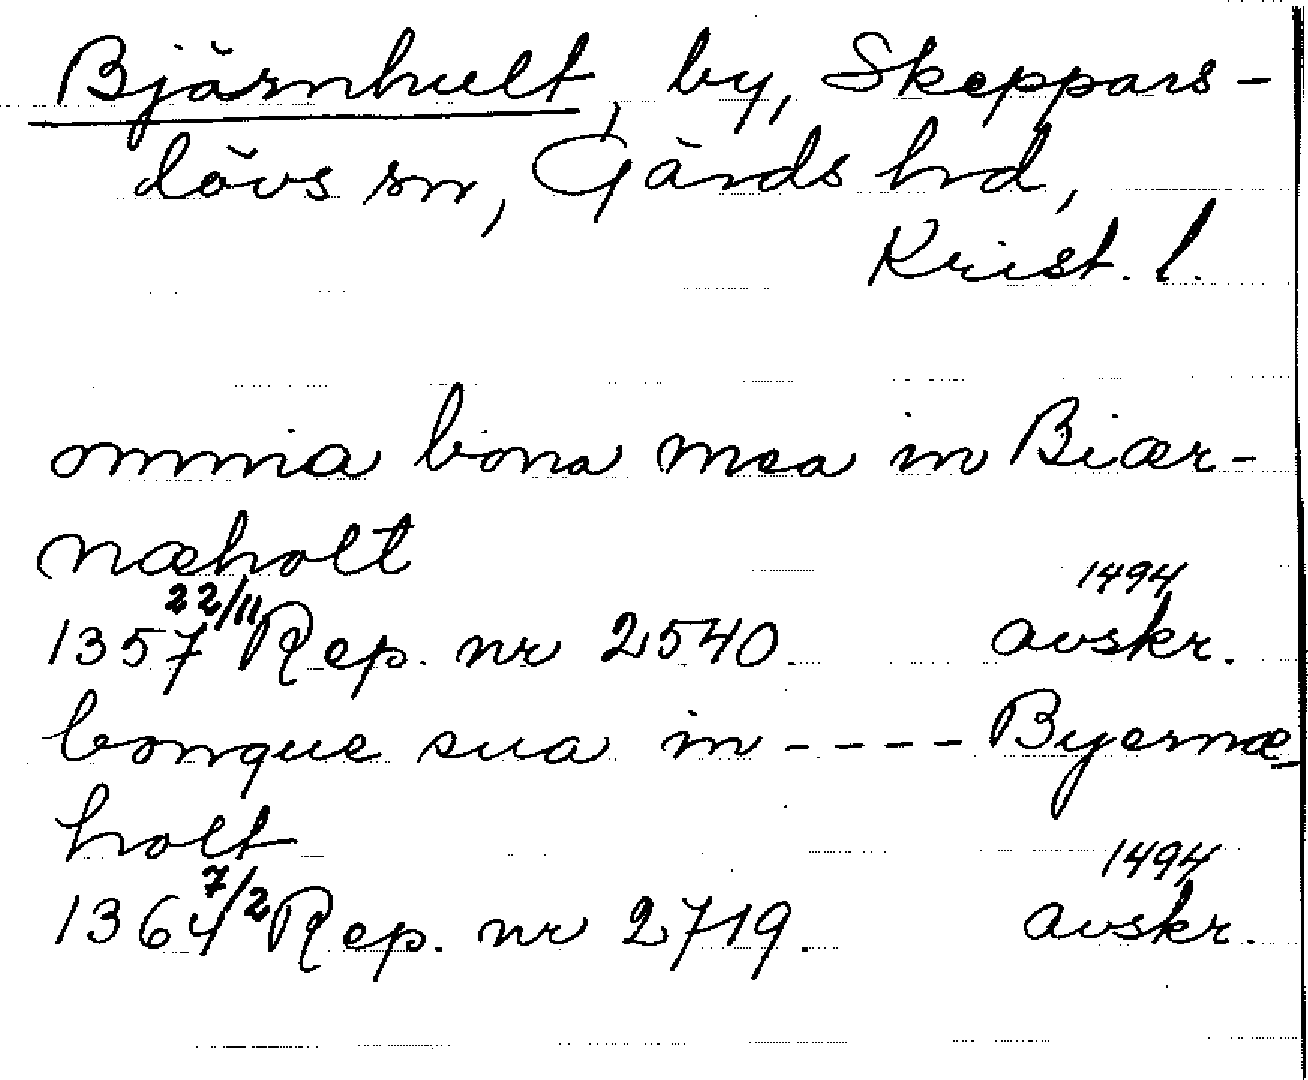 Bjärnhult, by, Skeppars-
lövs sn, Gärds hrd,
Krist. l.
omnia bona mea in Biær-
næholt
1357 22/11 Rep. nr 2540. 1494 avskr.
bonque sua in ---- Byernæ-
holt
1364 7/2 Rep. nr 2719. 1494 avskr.